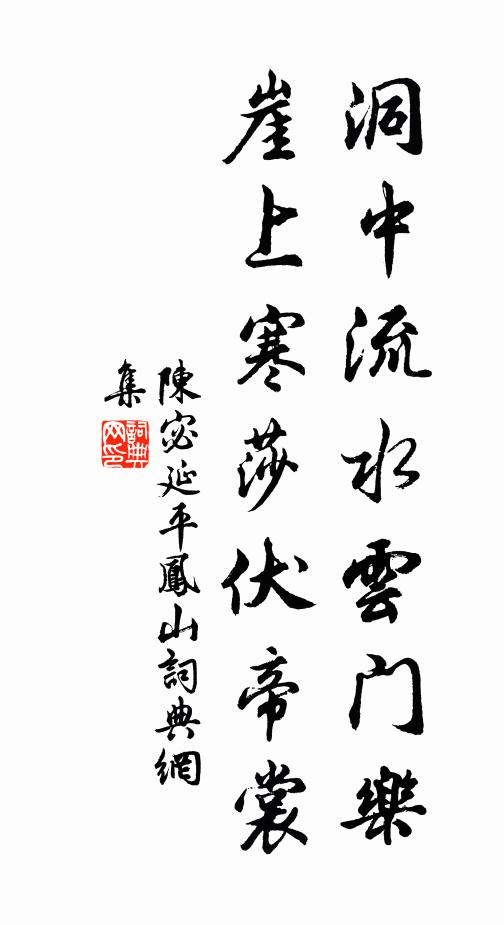 洞中流水雲门樂
崖上寒莎伏帝裳
陳宓延平鳳山詞典網
集
詞典网印